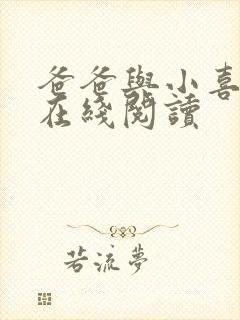 爸爸與小喜
在綫閱讀
若流夢